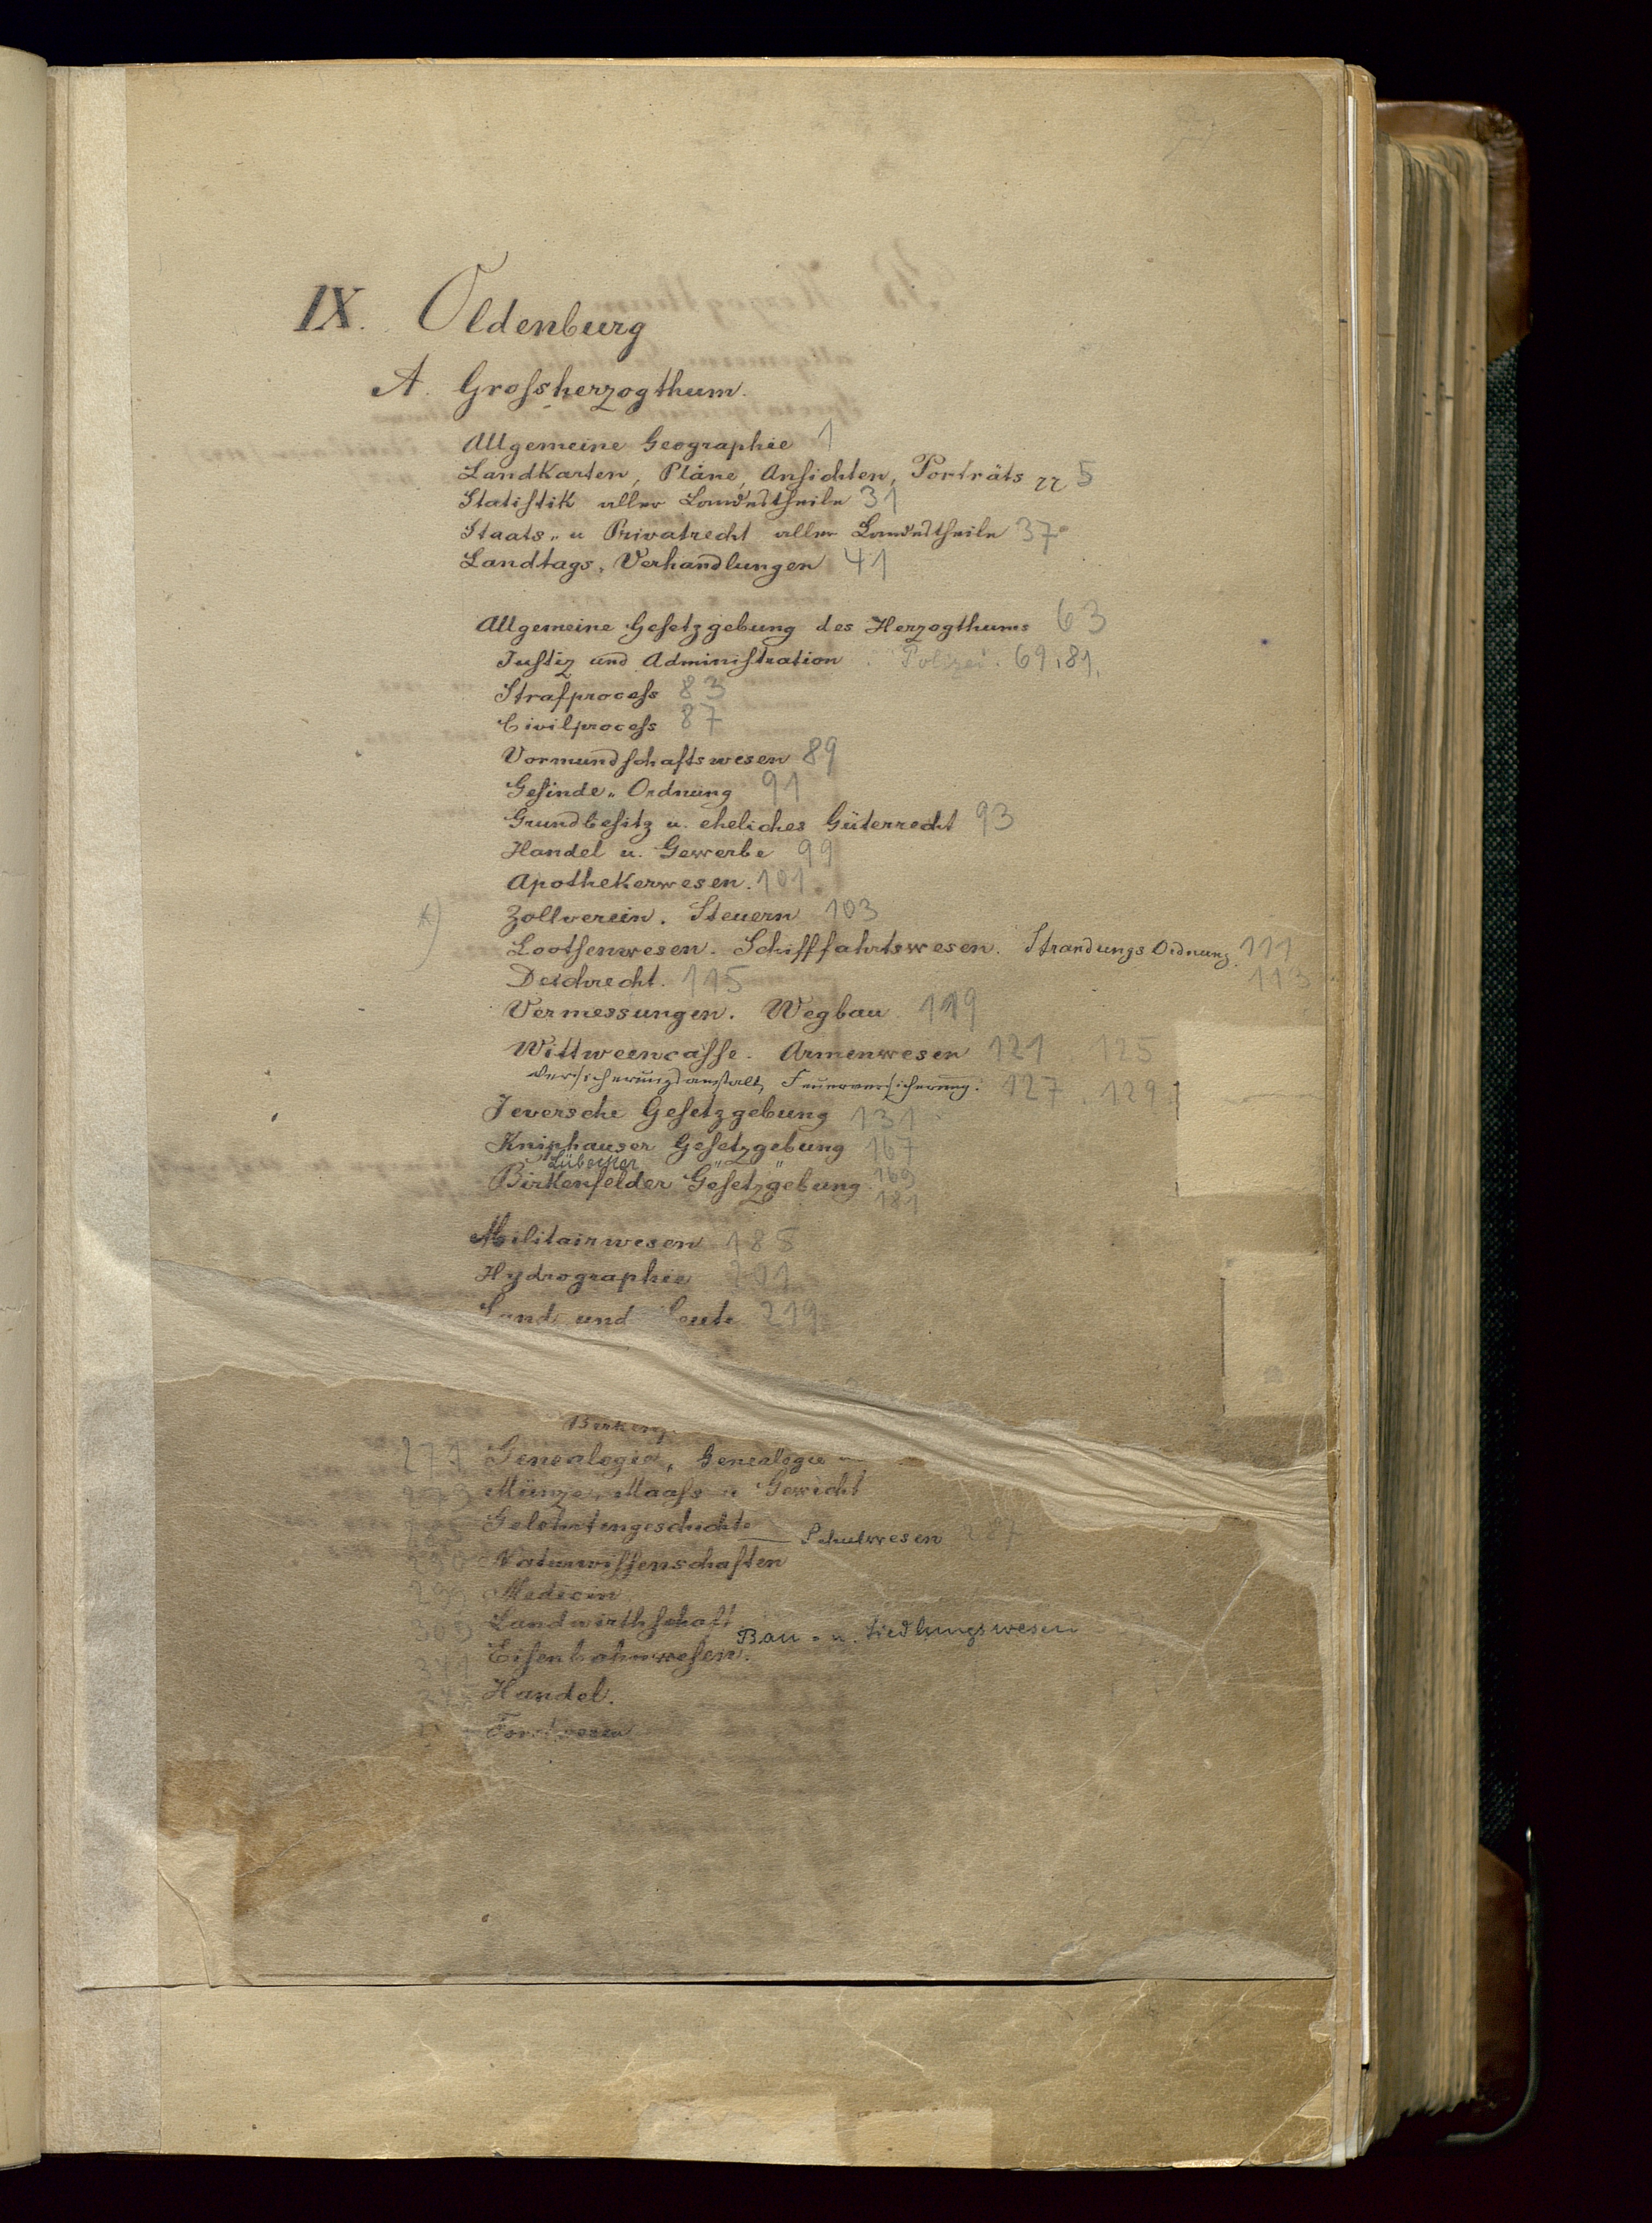 IX. Oldenburg
A. Grossherzogthum.
Allgemeine Geographie 1
Landkarten, Pläne, Ansichten, Porträts 5
Statistik aller Landestheile 31
Staats- u Privatrecht aller Landestheile 37
Landtags-Verhandlungen 41
Allgemeine Gesetzgebung des Herzogthums 63
Justiz und Administration. Polizei. 69,81,
Strafprocess 83
Civilprocess 87
Vormundschaftswesen 89
Gesinde-Ordnung 91
Grundbesitz u. eheliches Güterrecht 93
Handel u. Gewerbe 99
Apothekerwesen. 101
Zollverein. Steuern 103
Lootsenwesen. Schifffahrtswesen. Strandungs Ordnung. 111
113
Deichrecht. 115
Vermessungen. Wegbau 119
Wittweencasse. Armenwesen 121 125
Versicherungsanstalt, Feuerversicherung. 127. 129
Jeversche Gesetzgebung 131
Kniphauser Gesetzgebung 167
Lübecker " " 169
Birkenfelder Gesetzgebung 181
Militairwesen 185
Hydrographie
Land und Leute 219
271 Genealogie, Genealogie
Münze, Maass u Gewicht
Gelehrtengeschichte Schulwesen 287
Naturwissenschaften
Medecin
Landwirthschaft
Bau- u. Siedlungswesen
Eisenbahnwesen.
Handel.
Forstwesen